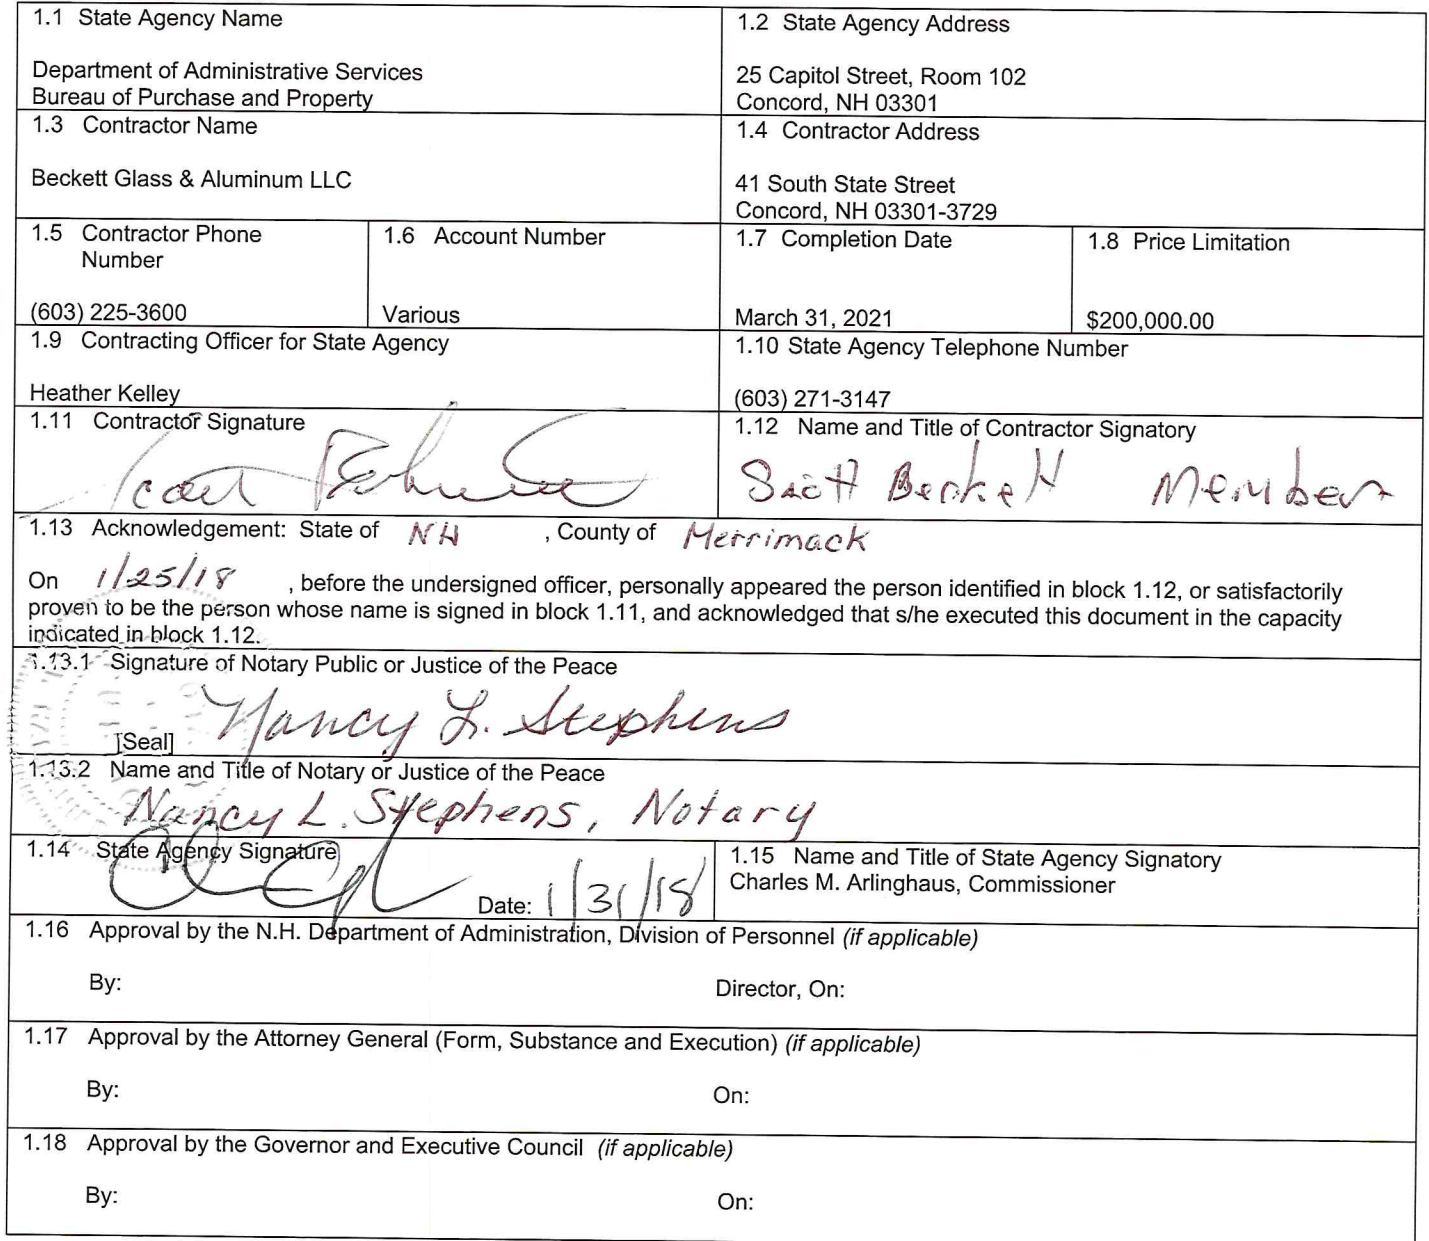 1.1 State Agency Name
Department of Administrative Services
Bureau of Purchase and Property
1.2 State Agency Address
25 Capitol Street, Room 102
Concord, NH 03301
1.3 Contractor Name
Beckett Glass & Aluminum LLC
1.4 Contractor Address
41 South State Street
Concord, NH 03301-3729
1.5 Contractor Phone
Number
(603) 225-3600
1.6 Account Number
Various
1.7 Completion Date
March 31, 2021
1.8 Price Limitation
$200,000.00
1.9 Contracting Officer for State Agency
Heather Kelley
1.10 State Agency Telephone Number
(603) 271-3147
1.11 Contractor Signature
1.12 Name and Title of Contractor Signatory
Scott Beckett Member
1.13 Acknowledgement: State of NH , County of Merrimack
On 1/25/18 , before the undersigned officer, personally appeared the person identified in block 1.12, or satisfactorily
proven to be the person whose name is signed in block 1.11, and acknowledged that s/he executed this document in the capacity
indicated in block 1.12.
1.13.1 Signature of Notary Public or Justice of the Peace
Nancy L. Stephens
[Seal]
1.13.2 Name and Title of Notary or Justice of the Peace
Nancy L. Stephens, Notary
1.14 State Agency Signature
Date: 1/31/18
1.15 Name and Title of State Agency Signatory
Charles M. Arlinghaus, Commissioner
1.16 Approval by the N.H. Department of Administration, Division of Personnel (if applicable)
By: Director, On:
1.17 Approval by the Attorney General (Form, Substance and Execution) (if applicable)
By: On:
1.18 Approval by the Governor and Executive Council (if applicable)
By: On: